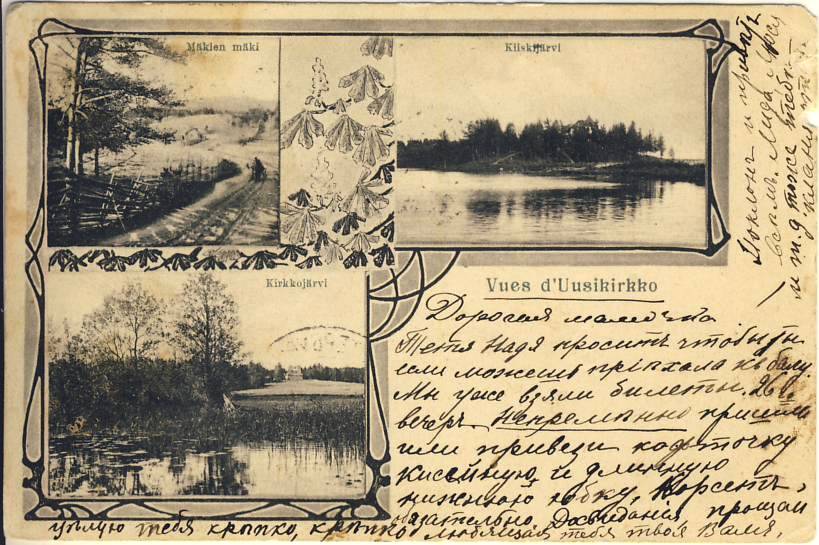 Mäkien mäki
Kiiskijärvi
Kirkkojärvi
Vues d'Uusikirkko
Дорогая мамочка
Тетя Надя проситъ чтобы ты
если можешь пріѣхала къ балу
Мы уже взяли билеты. 26
вечеръ. Непремѣнно пришли
или привези кофточку
кисейную и длинную
нижнюю юбку, корсетъ,
обязательно Досвиданія прощай
цѣлую тебя крѣпко, крѣпко любящая тебя твоя Валя.
Поклонъ и привѣтъ
всѣмъ. Лида
и т.д тоже тебѣ